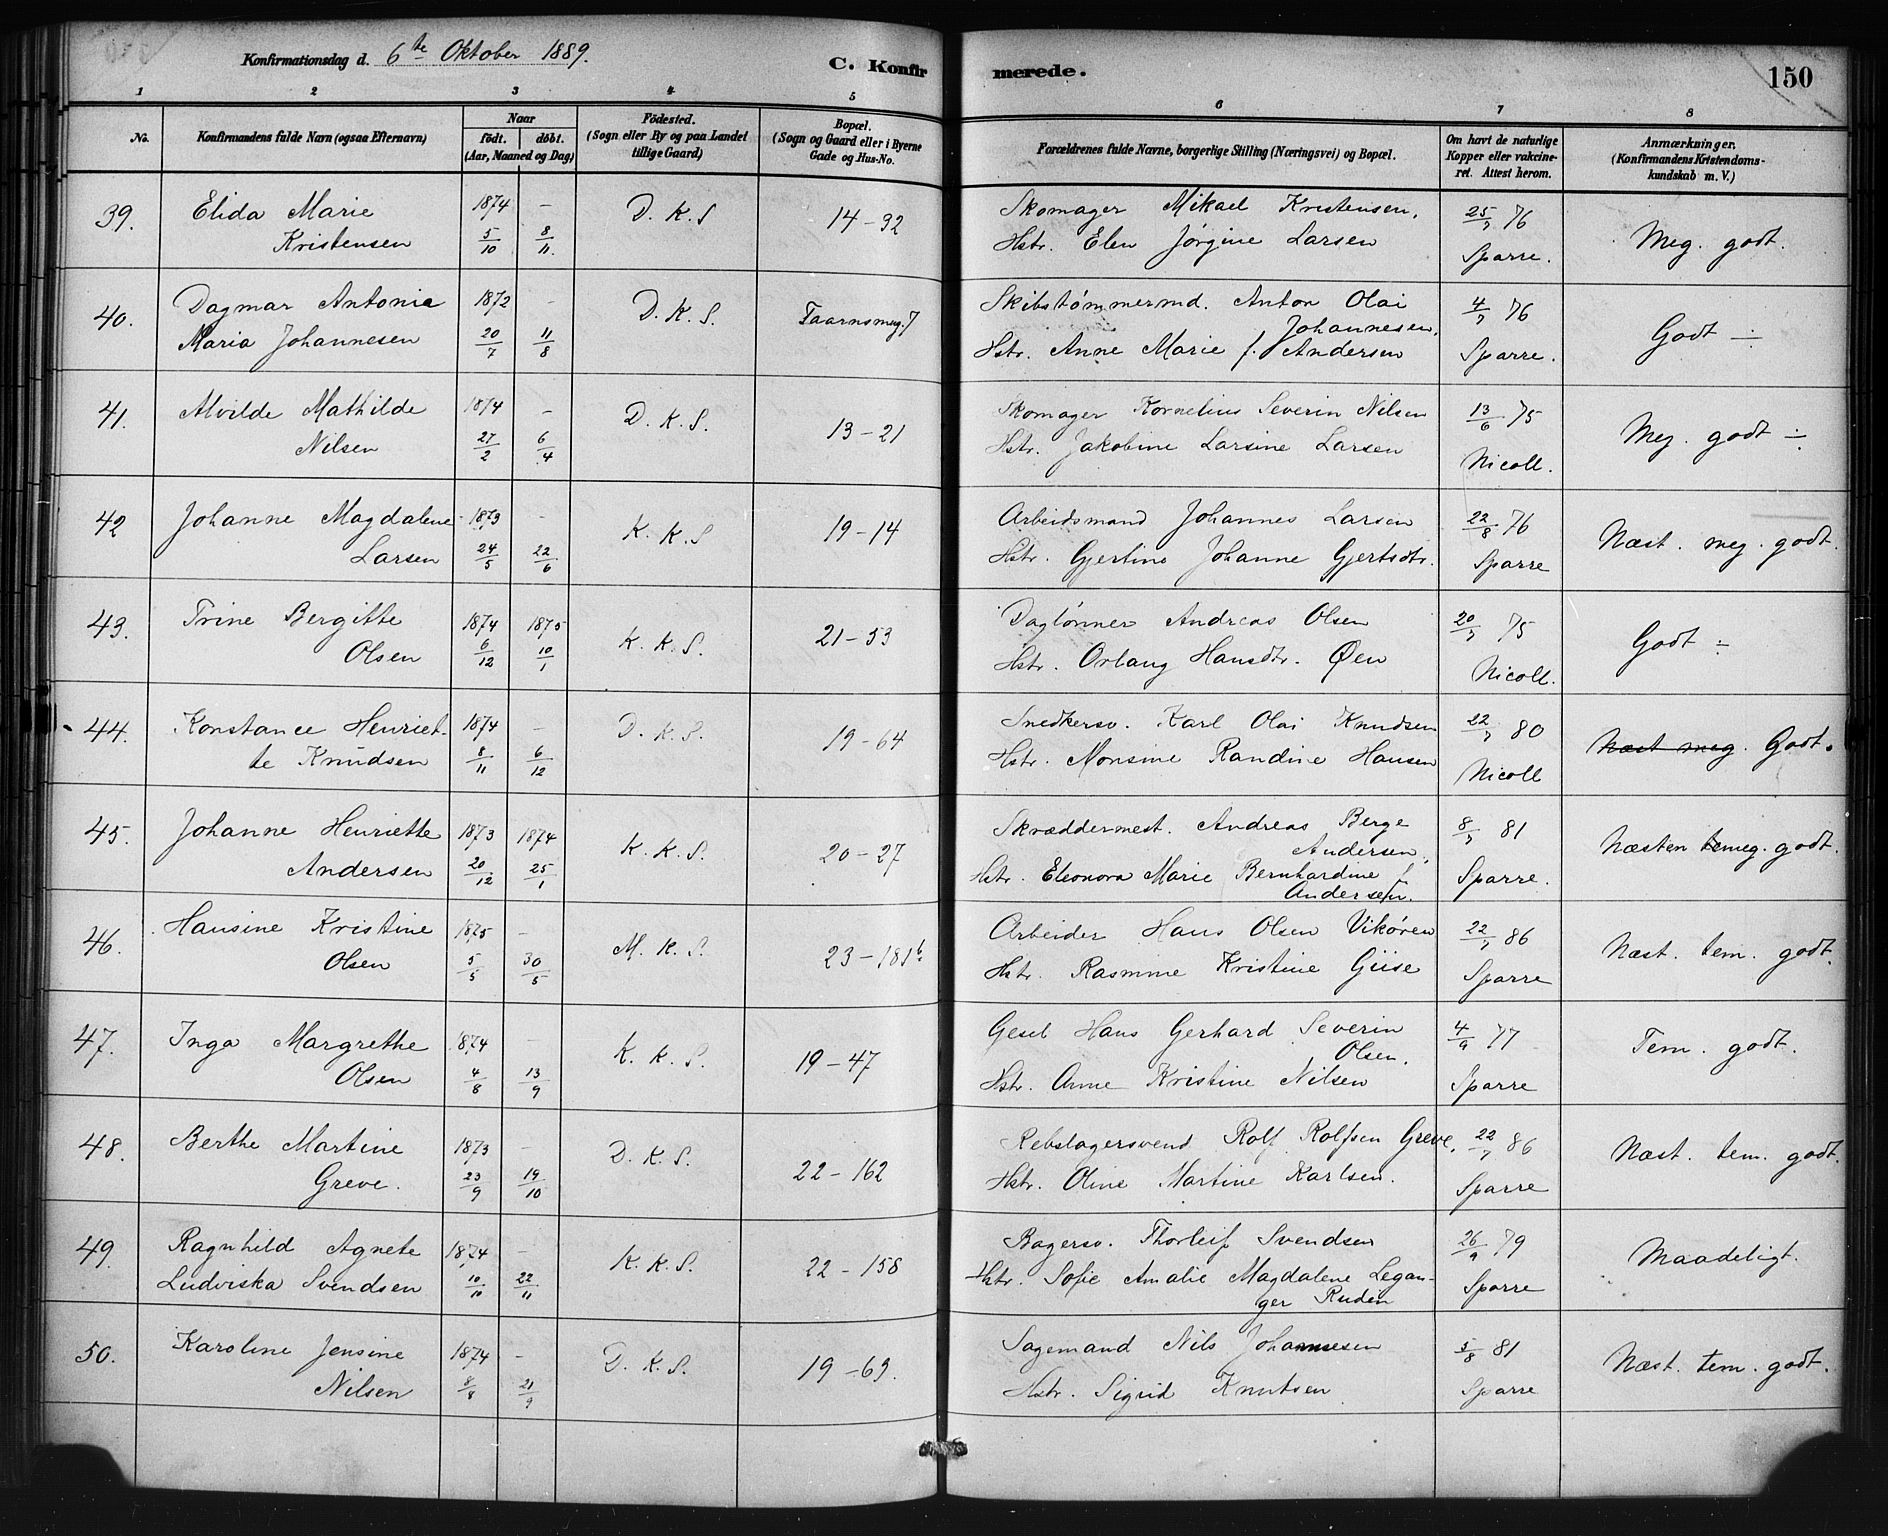 Konfirmationsdag d. 6te Oktober 1889.
C. Konfirmerede.
150
1 2 3 4 5 6 7 8
No. | Konfirmandens fulde Navn (ogsaa Efternavn) | Naar født. døbt. (Aar, Maaned og Dag) | Fødested. (Sogn eller By og paa Landet tillige Gaard) | Bopæl. (Sogn og Gaard eller i Byerne Gade og Hus-No. | Forældrenes fulde Navne, borgerlige Stilling (Næringsvei) og Bopæl. | Om havt de naturlige Kopper eller vakcineret. Attest herom. | Anmærkninger. (Konfirmandens Kristendomskundskab m. V.)
39. Elida Marie 1874 – D. K. S 14–32 Skomager Mikael Kristensen, 25/7 76 Meg. godt.
Kristensen 5/10 8/11. Hstr. Elen Jørgine Larsen Sparre.
40. Dagmar Antonie 1872 – D. K. S. Taarnsmug. 7 Skibstømmermd. Anton Olai 4/7 76 Godt ÷
Johannesen,
Maria Johannesen 20/7 11/8 Hstr. Anne Marie f. Andersen Sparre.
41. Alvilde Mathilde 1874 – D. K. S. 13–21 Skomager Kornelius Severin Nilsen 13/6 75 Meg. godt ÷
Nilsen 27/2 6/4 Hstr. Jakobine Larsine Larsen Nicoll.
42 Johanne Magdalene 1873 – K. K. S 19–14 Arbeidsmand Johannes Larsen 22/8 76 Næst. meg. godt.
Larsen 24/5 22/6 Hstr. Gjertine Johanne Gjertsdtr. Sparre
43. Trine Bergitte 1874 1875 K. K. S. 21–53 Daglønner Andreas Olsen 20/7 75 Godt ÷
Olsen 6/12 10/1 Hstr. Orlaug Hansdtr. Øen Nicoll.
44. Konstance Henriet- 1874 – D. K. S. 19–64 Snedkersv. Karl Olai Knudsen 22/7 80 Næst meg. Godt.
te Knudsen 8/11 6/12 Hstr. Monsine Randine Hansen Nicoll
45. Johanne Henriette 1873 1874 K. K. S. 20–27 Skræddermest. Andreas Berge 8/7 81 Næsten meg. godt.
Andersen,
Andersen 20/12 25/1 Hstr. Eleonora Marie Bernhardine f. Sparre.
Andersen.
46. Hansine Kristine 1875 – M. K. S. 23–181b Arbeider Hans Olsen Vikøren 22/7 86 Næst. tem. godt.
Olsen 5/5 30/5 Hstr. Rasmine Kristine Giise Sparre
47. Inga Margrethe 1874 – K. K. S. 19–47 Gesel Hans Gerhard Severin 4/9 77 Tem. godt.
Olsen.
Olsen 4/8 13/9 Hstr. Anne Kristine Nilsen Sparre
48. Berthe Martine 1873 – D. K. S. 22–162 Rebslagersvend Rolf Rolfsen Greve, 22/7 86 Næst. tem. godt.
Greve. 23/9 19/10 Hstr. Oline Martine Karlsen. Sparre
49. Ragnhild Agnete 1874 – K. K. S. 22–158 Bagersv. Thorleif Svendsen 26/9 79 Maadeligt.
Ludviska Svendsen 10/10 22/11 Hstr. Sofie Amalie Magdalene Legan- Sparre
ger Ruden
50. Karoline Jensine 1874 – D. K. S. 19–63. Sagemand Nils Johannesen 5/8 81 Næst. tem. godt.
Nilsen 8/8 21/9 Hstr. Sigrid Knutsen Sparre